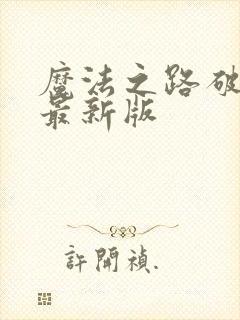 魔法之路破
最新版
許開禎.